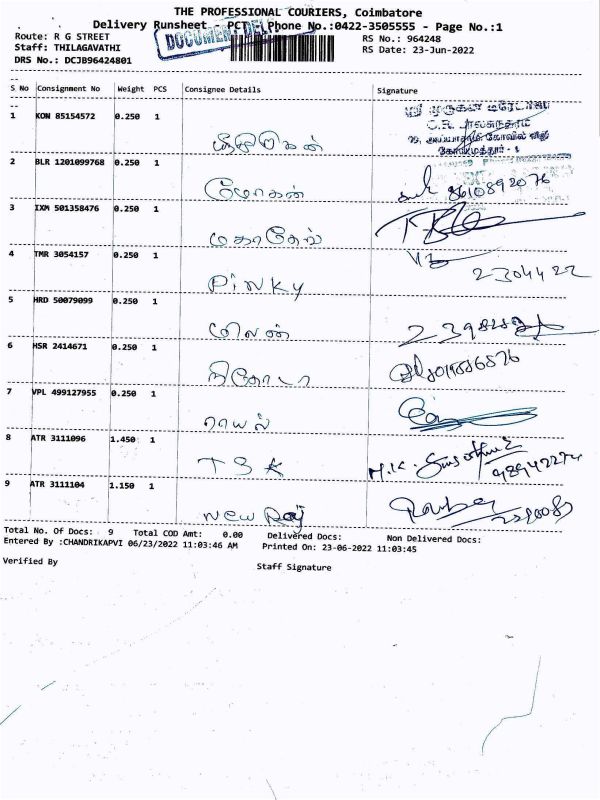 THE PROFESSIONAL COURIERS, Coimbatore
Delivery Runsheet PCT Phone No.:0422-3505555 - Page No.:1
Route: R G STREET RS No.: 964248
Staff: THILAGAVATHI RS Date: 23-Jun-2022
DRS No.: DCJB96424801
S No Consignment No Weight PCS Consignee Details Signature
1 KON 85154572 0.250 1
2 BLR 1201099768 0.250 1
மோகன் 8610892076
3 IXM 501358476 0.250 1
மகாதேவ்
4 TMR 3054157 0.250 1
Pinky 2304422
5 HRD 50079099 0.250 1
மிலன்
6 HSR 2414671 0.250 1
7 VPL 499127955 0.250 1
ராயல்
8 ATR 3111096 1.450 1
TSK M.K.
9 ATR 3111104 1.150 1
New Raj
Total No. Of Docs: 9 Total COD Amt: 0.00 Delivered Docs: Non Delivered Docs:
Entered By :CHANDRIKAPVI 06/23/2022 11:03:46 AM Printed On: 23-06-2022 11:03:45
Verified By Staff Signature